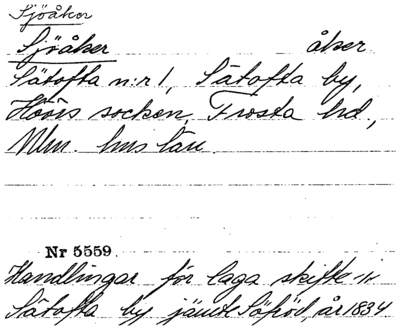 Sjöåkor
Sjöåker åker
Sätofta n:r 1, Sätofta by,
Höörs socken, Frosta hd.,
Mlm. hus län.
Nr 5559.
Handlingar för laga skifte
Sätofta by jämte år 1834